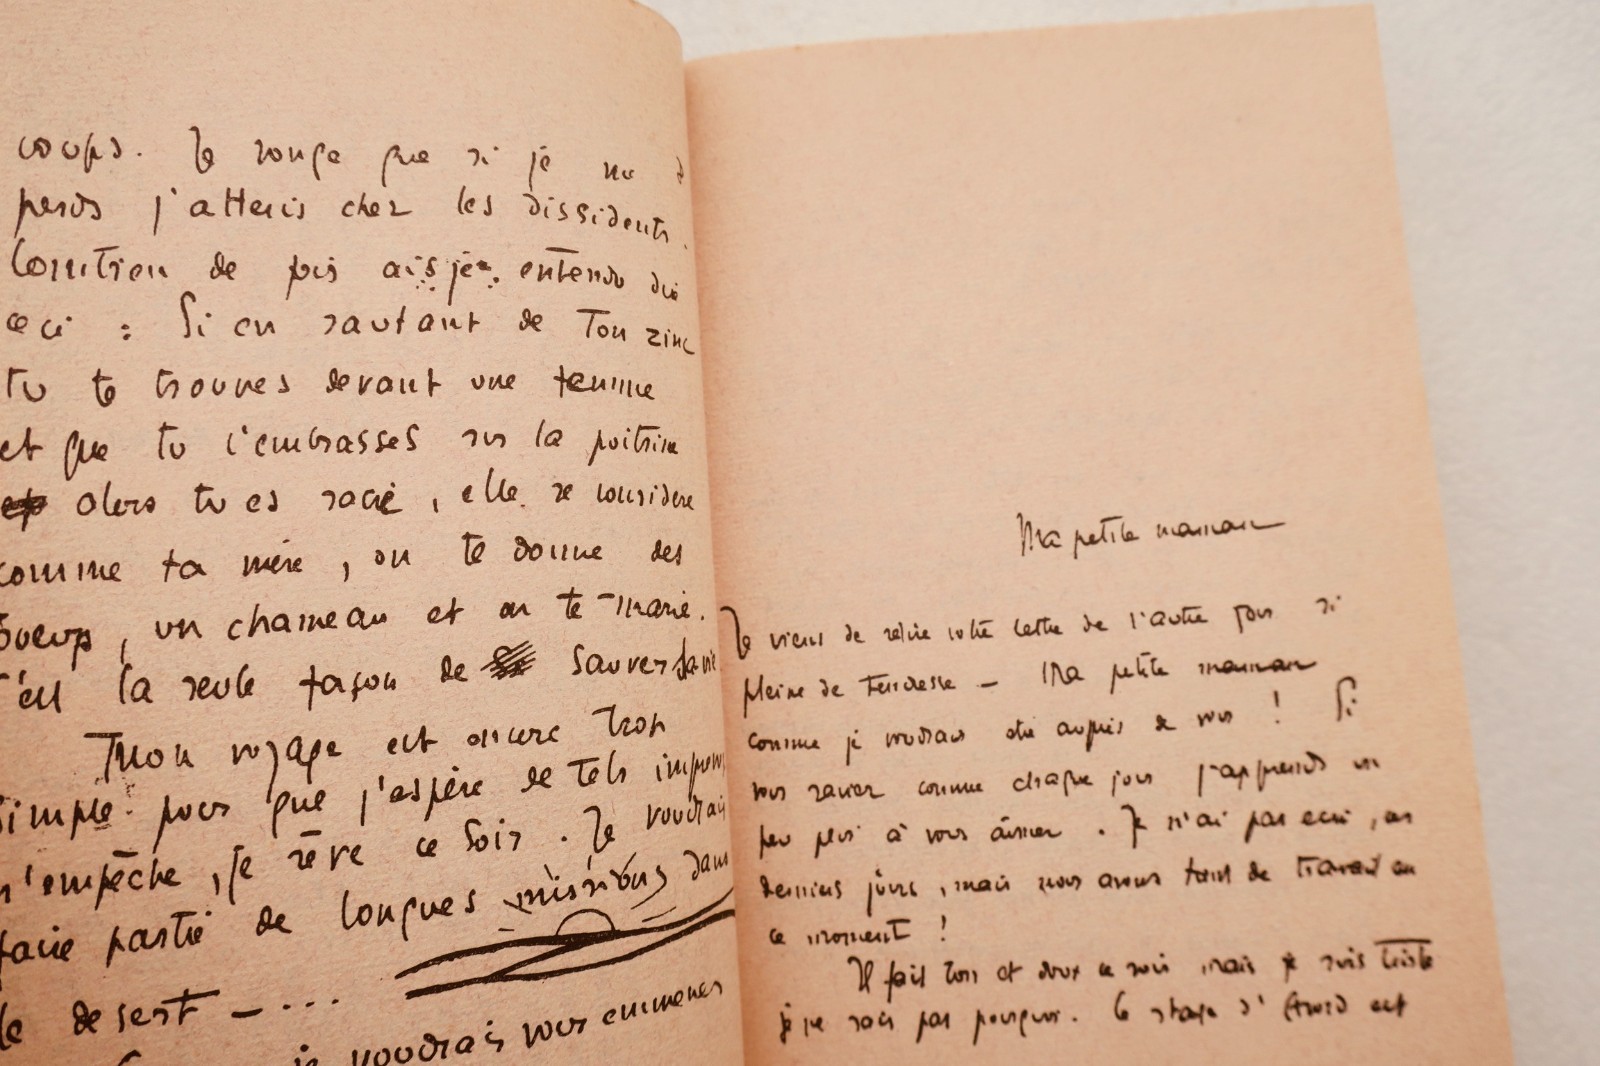 coups. Je songe que si je me
perds j'atterris chez les dissidents.
Combien de fois ais je entendu dire
ceci : Si en sautant de ton zinc
tu te trouves devant une femme
et que tu l'embrasses sur la poitrine
alors tu es sacré, elle se considère
comme ta mère, on te donne des
boeufs, un chameau et on te marie.
C'est la seule façon de sauver ta vie
Mon voyage est encore trop
simple pour que j'espère de tels imprévus
n'empêche, je rêve ce soir. Je voudrais
faire partie de longues missions dans
le desert - ...
je voudrais vous emmener
Ma petite maman
Je viens de relire votre lettre de l'autre jour si
pleine de tendresse - Ma petite maman
comme je voudrais être auprès de vous ! Si
vous saviez comme chaque jour j'apprends un
peu plus à vous aimer. Je n'ai pas écrit, ces
derniers jours, mais nous avons tant de travail en
ce moment !
Il fait bon et doux ce soir mais je suis triste
je ne sais pas pourquoi. Ce stage d' est